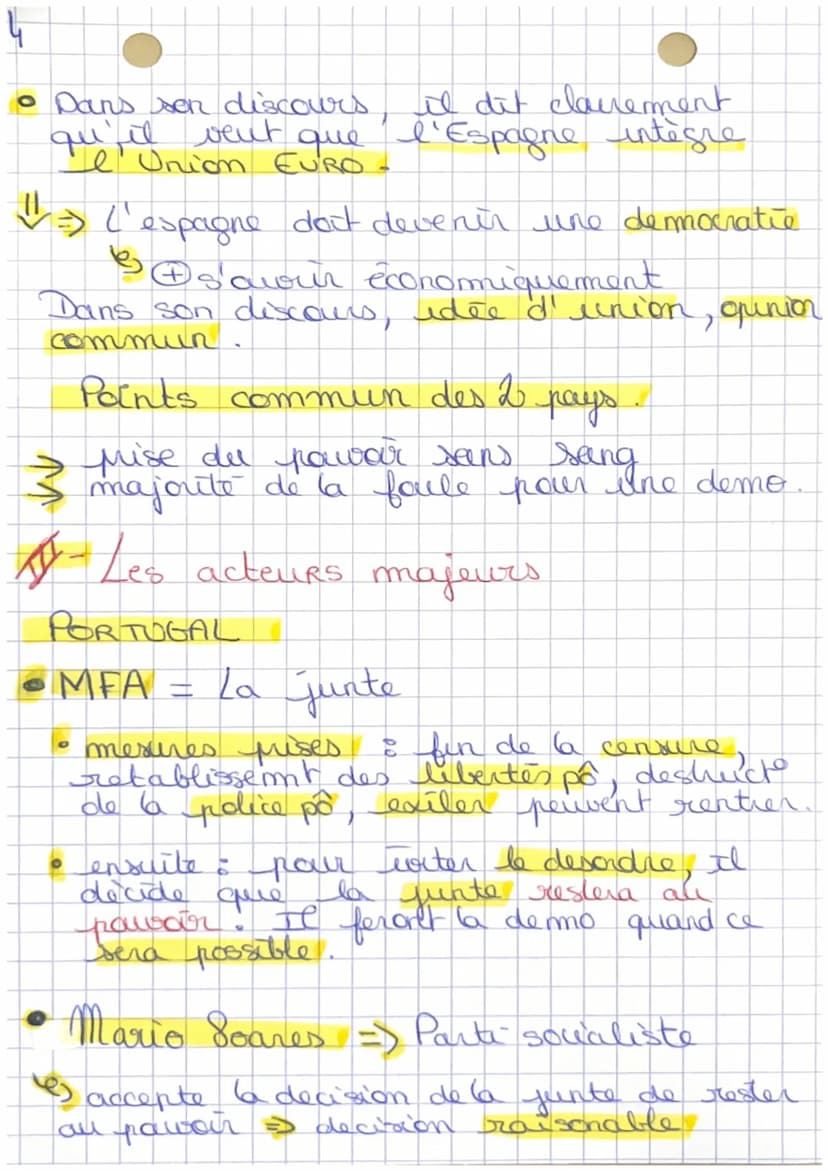 4
• Dans son discours, il dit clairement
qu'il veut que l'Espagne intègre
l'Union EURO.
⇓ => L'espagne doit devenir une democratie
↳ ⊕ s'ouvrir économiquement
Dans son discours, idée d'union, opinion
commun.
Points commun des 2 pays.
→ prise du pouvoir sans sang
→ majorité de la foule pour une demo.
II - Les acteurs majeurs
PORTUGAL
• MFA = La junte
• mesures prises : fin de la censure,
retablissemnt des libertés pô, destruct°
de la police pô, exiler peuvent rentrer.
• ensuite : pour éviter le desordre, Il
décide que la junte restera au
pouvoir. Il feront la demo quand ce
sera possible.
• Mario Soares => Parti socialiste
↳ accepte la decision de la junte de rester
au pouvoir => decision raisonable